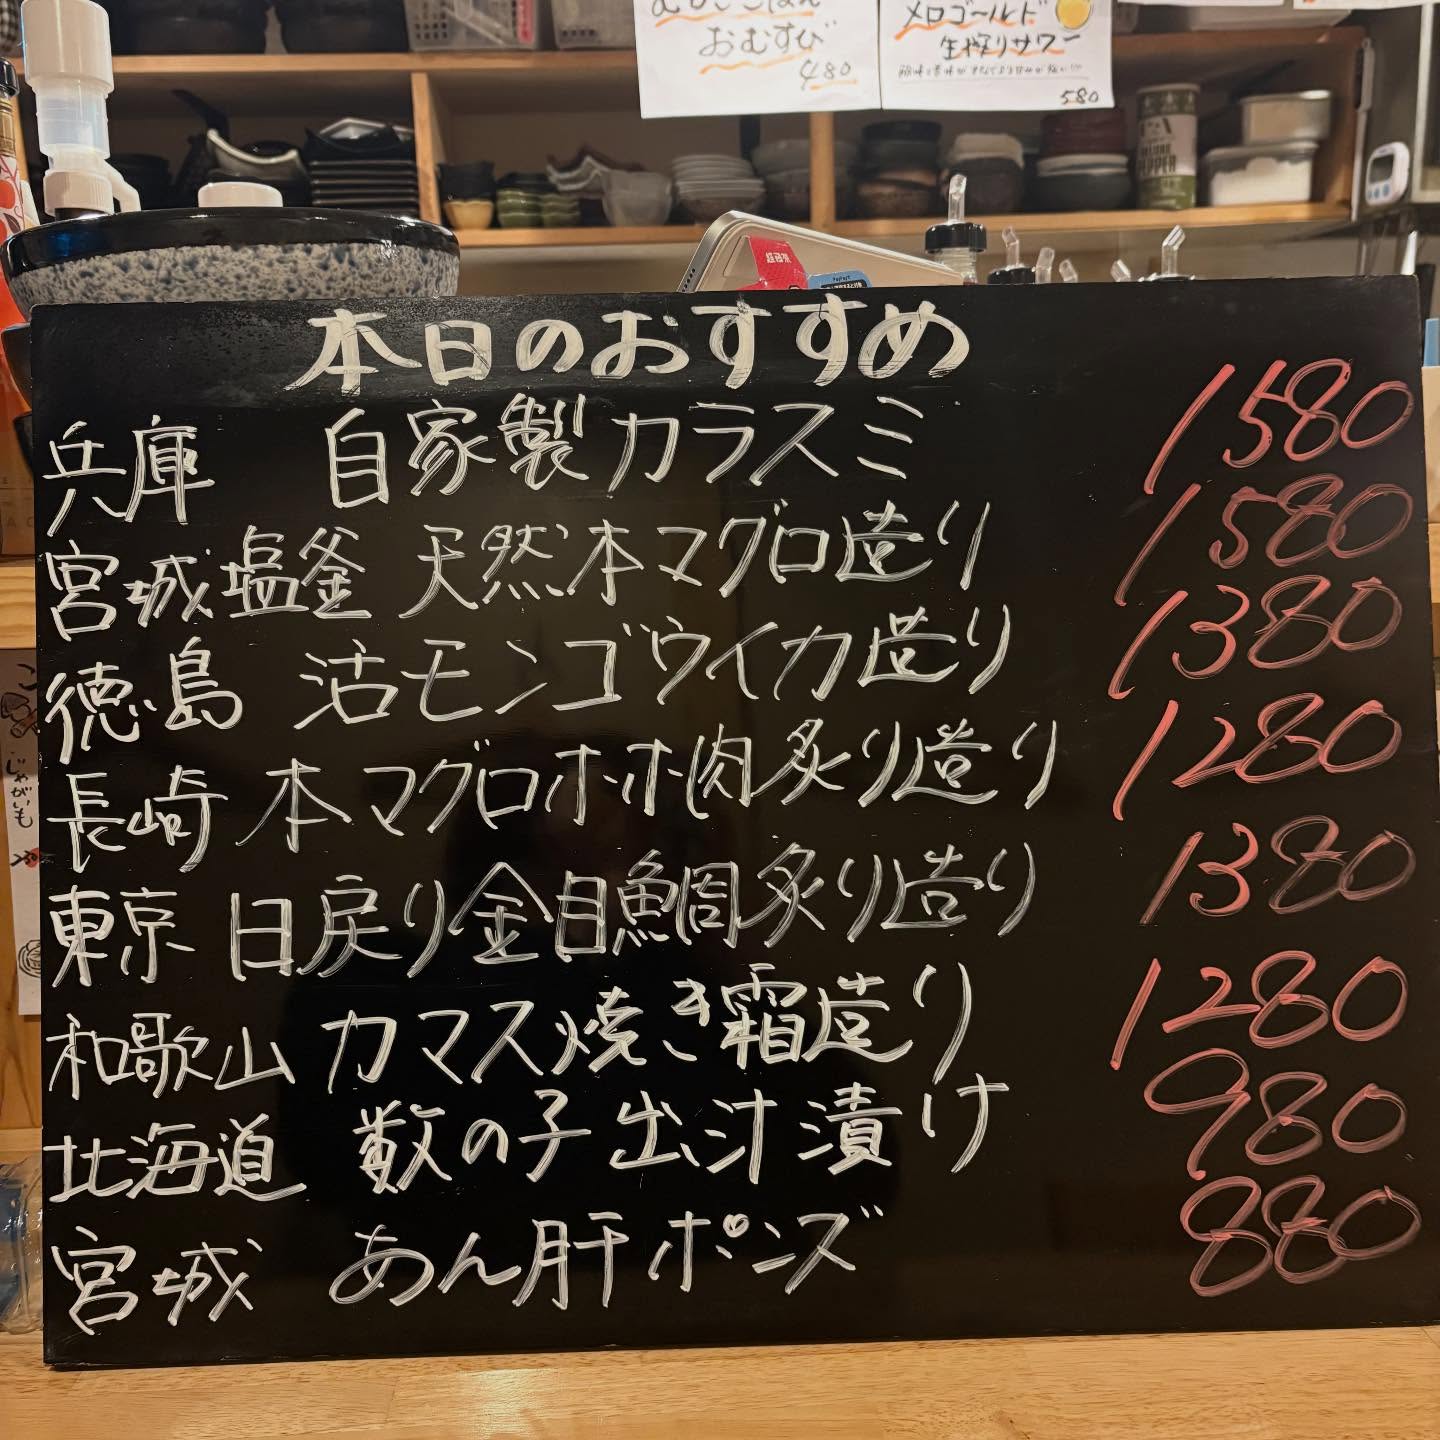 おむすび
480
メロゴールド
生搾りサワー
580
本日のおすすめ
兵庫 自家製カラスミ 1580
宮城塩釜 天然本マグロ造り 1580
徳島 活モンゴウイカ造り 1380
長崎 本マグロホホ肉炙り造り 1280
東京 日戻り金目鯛炙り造り 1380
和歌山 カマス焼き霜造り 1280
北海道 数の子出汁漬け 980
宮城 あん肝ポンズ 880
じゃがいも